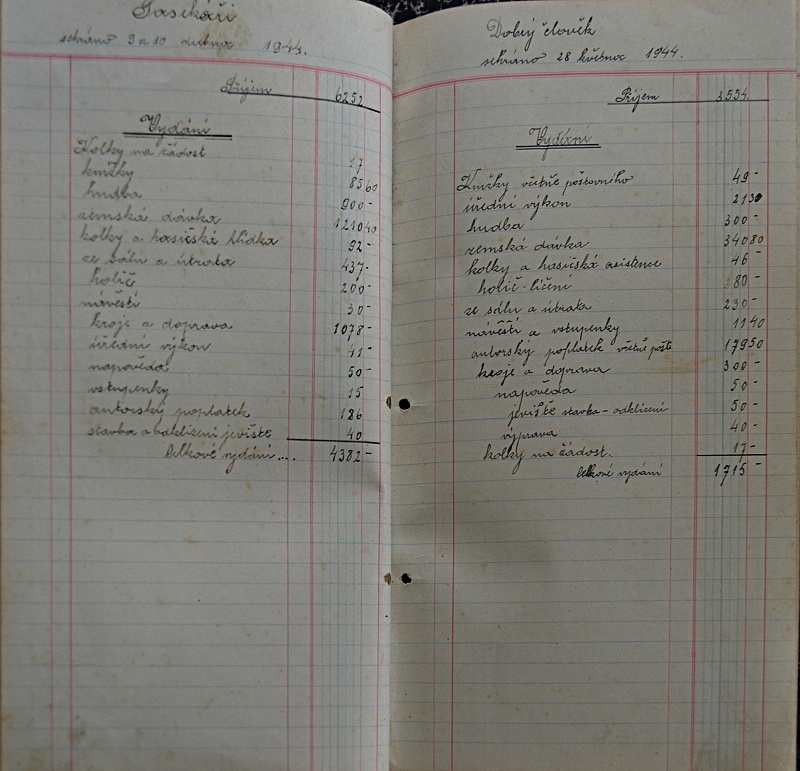 Jasekáři
sehráno 9 a 10 dubna 1944.
Příjem 6252
Vydání
Kolky na žádost 17
knížky 85 60
hudba 900-
zemská dávka 1210 40
kolky a hasičská hlídka 92-
ze sálu a útrata 437-
holič 200-
návěstí 30-
kroje a doprava 1078-
úřední výkon 41-
napověda 50-
vstupenky 15
autorský poplatek 186
stavba a odklizení jeviště 40
Celkové vydání ... 4382-
Dobrý člověk
sehráno 28 května 1944.
Příjem 3554.
Vydání
Knížky včetně poštovního 49-
úřední výkon 21 30
hudba 300-
zemská dávka 340 80
kolky a hasičská asistence 46-
holič-líčení 80-
ze sálu a útrata 230-
návěští a vstupenky 11 40
autorský poplatek včetně pošt. 179 50
kroje a doprava 300-
napověda 50-
jeviště stavba-odklizení 50-
výprava 40-
kolky na žádost. 17-
Celkové vydání 1715-